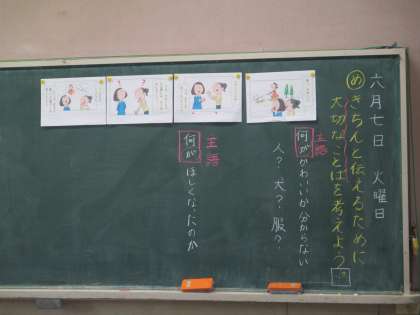 六月七日 火曜日
め きちんと伝えるために
大切なことばを考えよう
主語
何がかわいいか分からない
人？犬？服？
主語
何がほしくなったのか